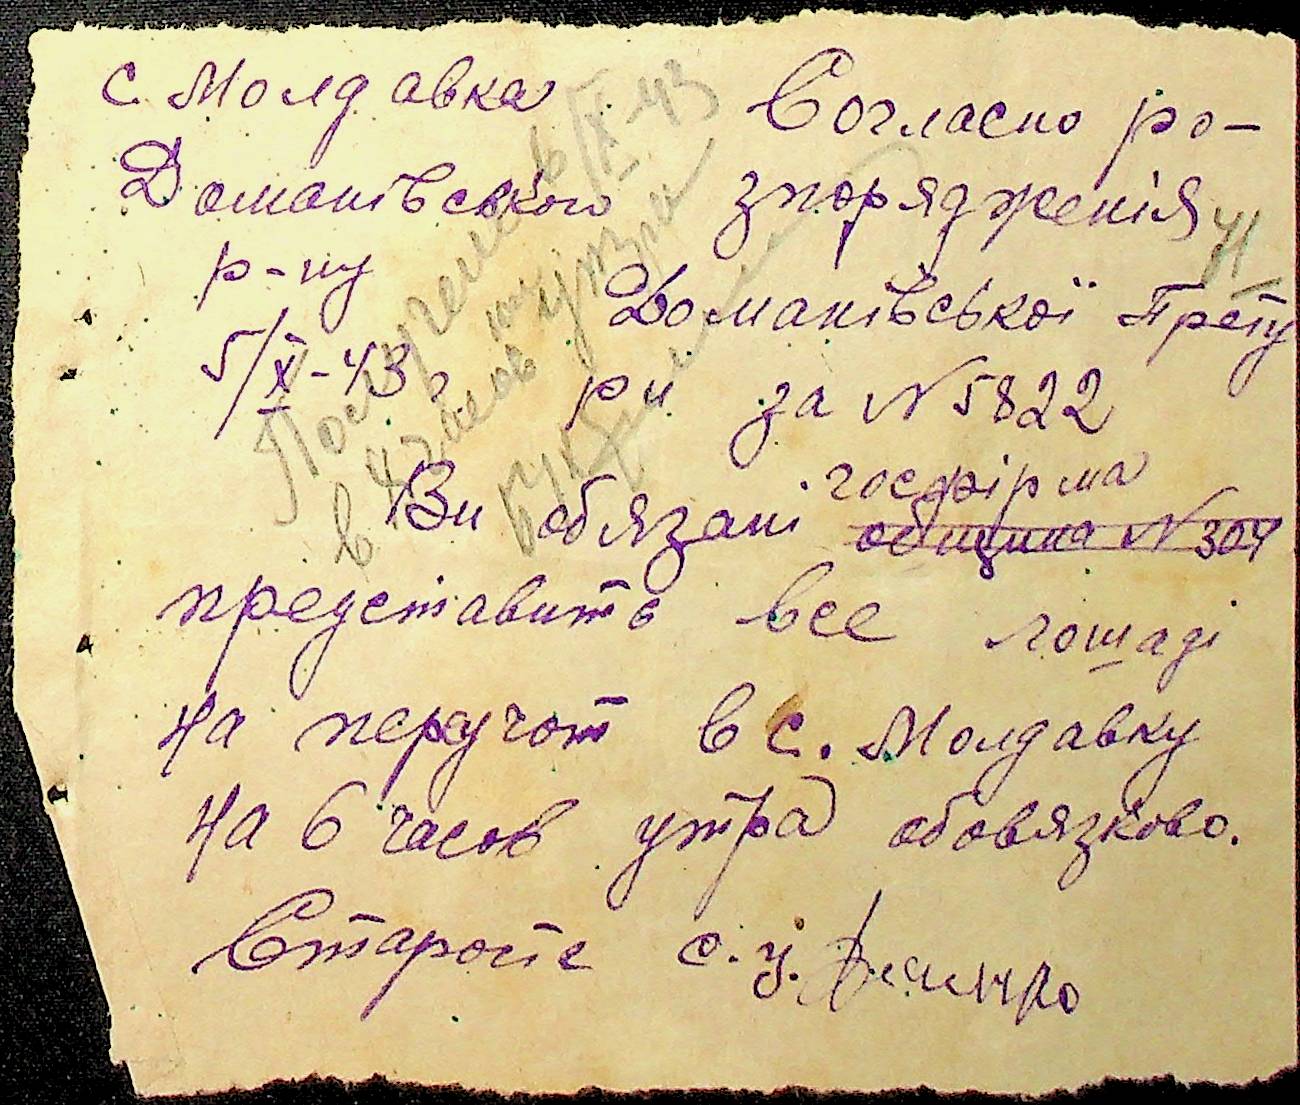 с. Молдавка
Доманівського
р-ну
5/X-43.
Согласно ро-
зпорядженія
Доманівської Прету
ри за №5822
Ви обязані госфірма
община №304
представить все лошаді
на переучот в с. Молдавку
на 6 часов утра обовязково.
Старосте с. у.
Получено 6/X-43
в 4 часов утра
41